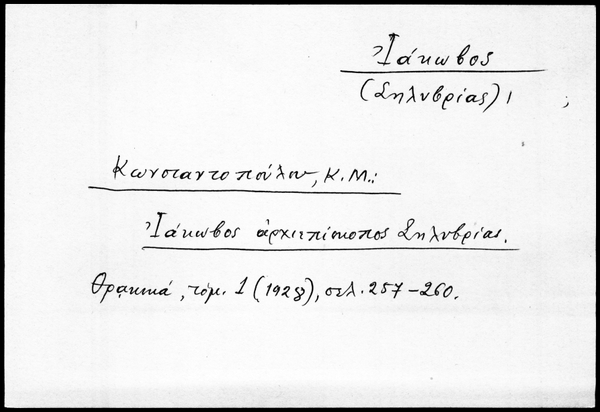 Ἰάκωβος
(Σηλυβρίας) 1 ;
Κωνσταντοπούλου, Κ.Μ.:
Ἰάκωβος ἀρχιεπίσκοπος Σηλυβρίας.
Θρᾳκικά, τόμ. 1 (1928), σελ. 257-260.